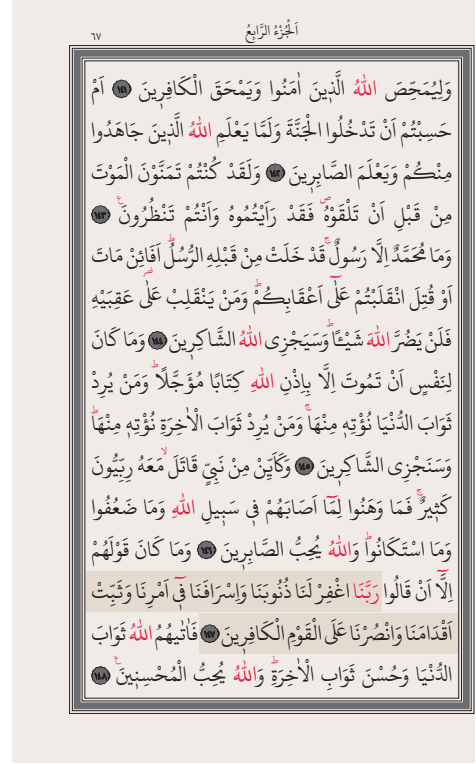 اَلْجُزْءُ الرَّابِعُ
٦٧
وَلِيُمَحِّصَ اللّٰهُ الَّذِينَ اٰمَنُوا وَيَمْحَقَ الْكَافِرِينَ ﴿١٤١﴾ اَمْ
حَسِبْتُمْ اَنْ تَدْخُلُوا الْجَنَّةَ وَلَمَّا يَعْلَمِ اللّٰهُ الَّذِينَ جَاهَدُوا
مِنْكُمْ وَيَعْلَمَ الصَّابِرِينَ ﴿١٤٢﴾ وَلَقَدْ كُنْتُمْ تَمَنَّوْنَ الْمَوْتَ
مِنْ قَبْلِ اَنْ تَلْقَوْهُۖ فَقَدْ رَاَيْتُمُوهُ وَاَنْتُمْ تَنْظُرُونَ۟ ﴿١٤٣﴾
وَمَا مُحَمَّدٌ اِلَّا رَسُولٌۚ قَدْ خَلَتْ مِنْ قَبْلِهِ الرُّسُلُۜ اَفَائِنْ مَاتَ
اَوْ قُتِلَ انْقَلَبْتُمْ عَلٰٓى اَعْقَابِكُمْۜ وَمَنْ يَنْقَلِبْ عَلٰى عَقِبَيْهِ
فَلَنْ يَضُرَّ اللّٰهَ شَيْـًٔاۜ وَسَيَجْزِى اللّٰهُ الشَّاكِرِينَ ﴿١٤٤﴾ وَمَا كَانَ
لِنَفْسٍ اَنْ تَمُوتَ اِلَّا بِاِذْنِ اللّٰهِ كِتَابًا مُؤَجَّلًاۜ وَمَنْ يُرِدْ
ثَوَابَ الدُّنْيَا نُؤْتِهٖ مِنْهَاۚ وَمَنْ يُرِدْ ثَوَابَ الْاٰخِرَةِ نُؤْتِهٖ مِنْهَاۜ
وَسَنَجْزِى الشَّاكِرِينَ ﴿١٤٥﴾ وَكَاَيِّنْ مِنْ نَبِيٍّ قَاتَلَۙ مَعَهُ رِبِّيُّونَ
كَثِيرٌۚ فَمَا وَهَنُوا لِمَٓا اَصَابَهُمْ فٖى سَبِيلِ اللّٰهِ وَمَا ضَعُفُوا
وَمَا اسْتَكَانُواۜ وَاللّٰهُ يُحِبُّ الصَّابِرِينَ ﴿١٤٦﴾ وَمَا كَانَ قَوْلَهُمْ
اِلَّٓا اَنْ قَالُوا رَبَّنَا اغْفِرْ لَنَا ذُنُوبَنَا وَاِسْرَافَنَا فٖٓى اَمْرِنَا وَثَبِّتْ
اَقْدَامَنَا وَانْصُرْنَا عَلَى الْقَوْمِ الْكَافِرِينَ ﴿١٤٧﴾ فَاٰتٰيهُمُ اللّٰهُ ثَوَابَ
الدُّنْيَا وَحُسْنَ ثَوَابِ الْاٰخِرَةِۜ وَاللّٰهُ يُحِبُّ الْمُحْسِنِينَ۟ ﴿١٤٨﴾